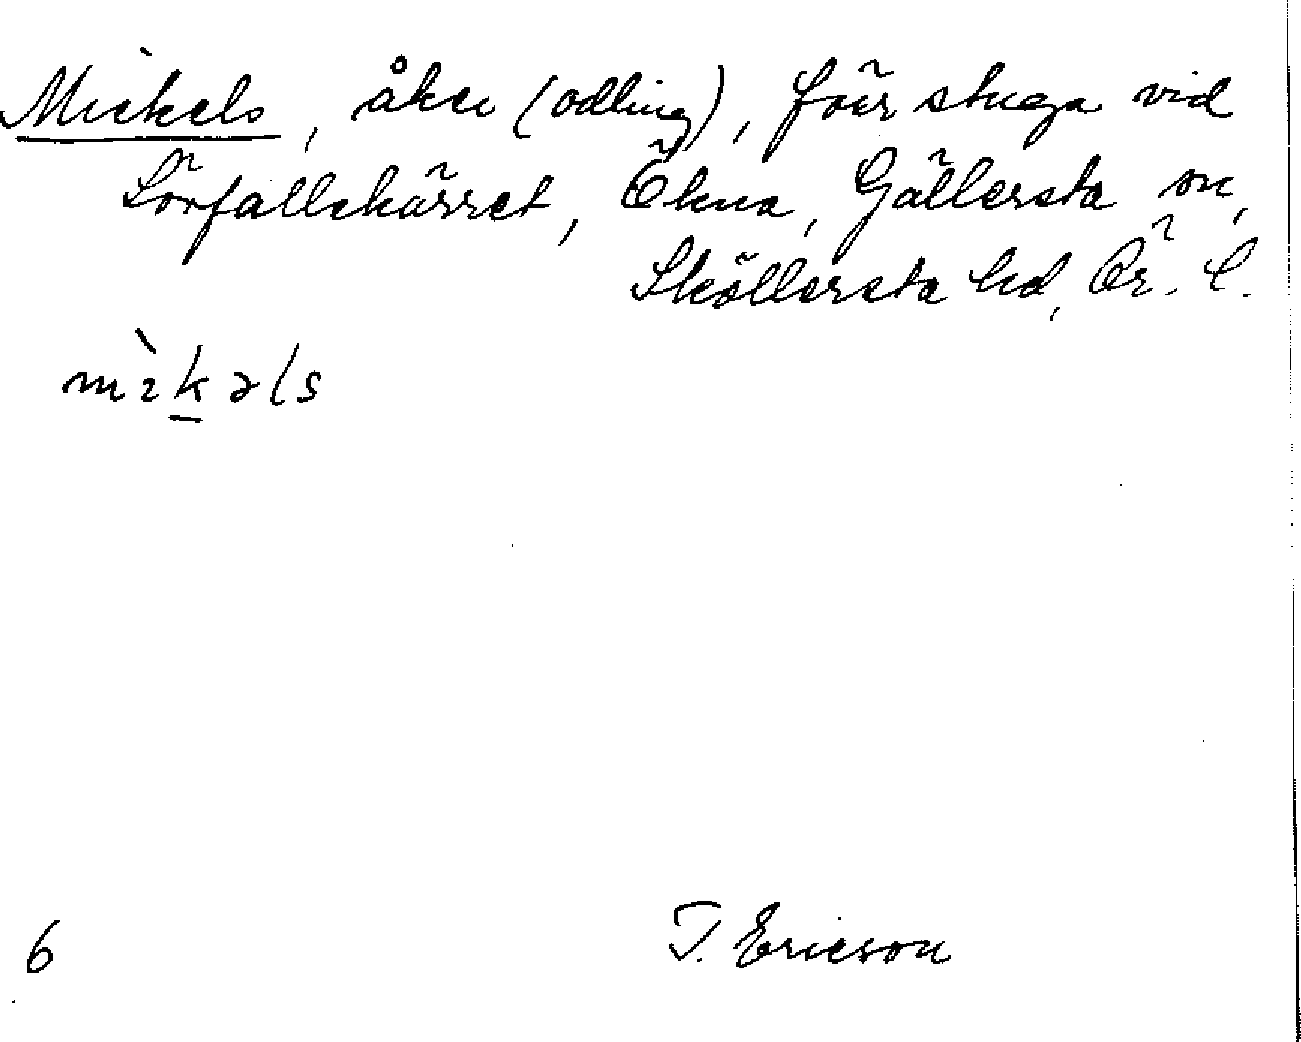 Mickels, åker (odling), förr stuga vid
Sörfallskärret, Ökna, Gällersta sn,
Sköllersta hd, Ör. l.
mìkəls
6
T. Ericson